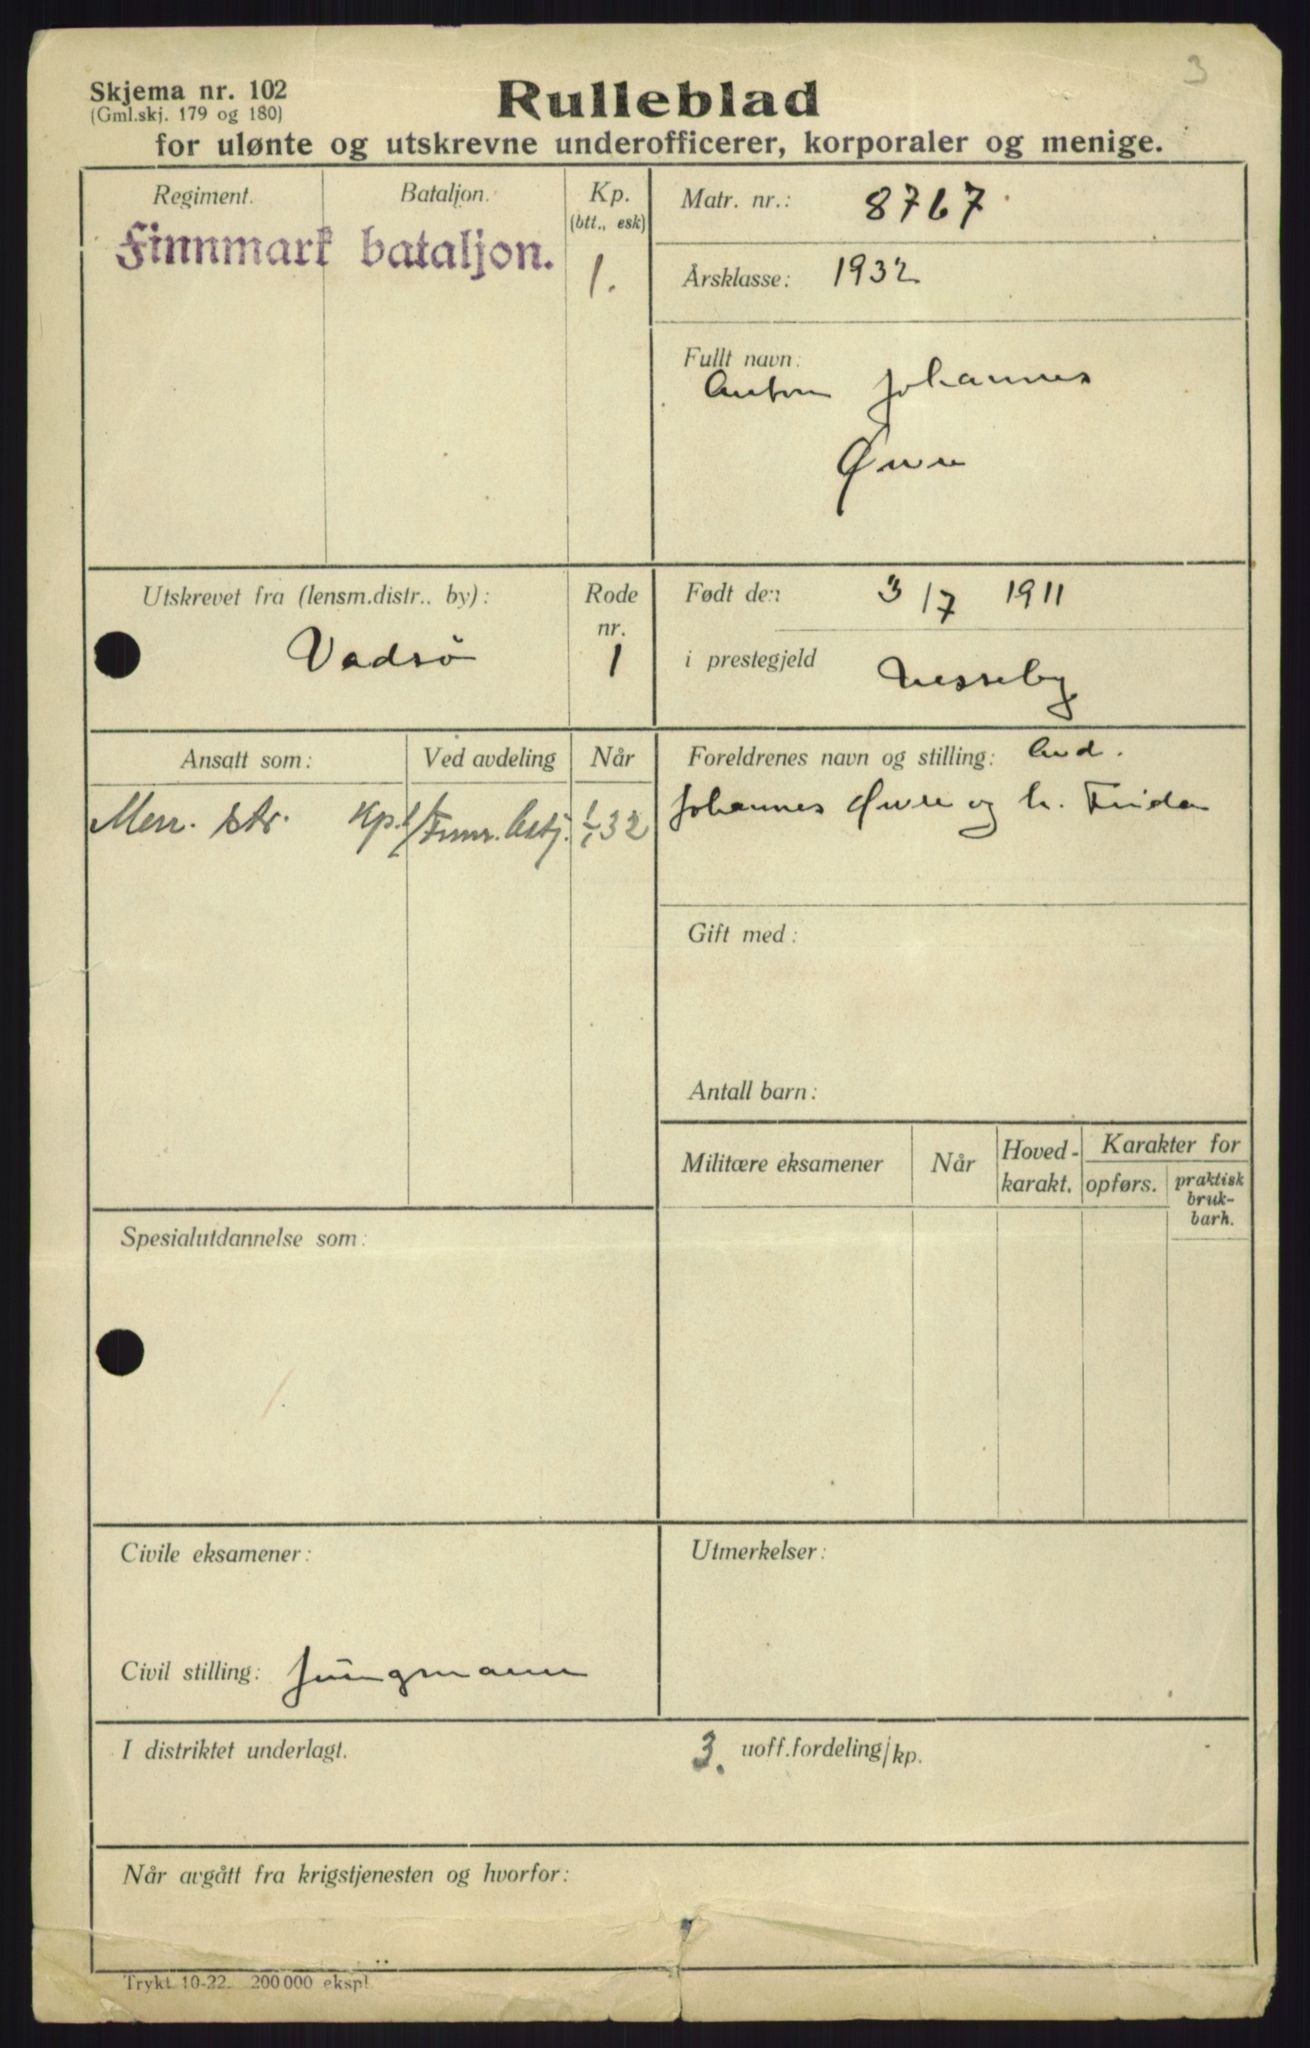 3
Skjema nr. 102
(Gml.skj. 179 og 180)
Rulleblad
for ulønte og utskrevne underofficerer, korporaler og menige.
Regiment.
Bataljon.
Kp.
(btt., esk)
Finnmark bataljon.
1.
Matr. nr.: 8767
Årsklasse: 1932
Fullt navn:
Anton Johannes
Øvre
Utskrevet fra (lensm.distr.. by):
Vadsø
Rode
nr.
1
Født den 3/7 1911
i prestegjeld Nesseby
Ansatt som:
Ved avdeling
Når
Men. str. Kp.1/Finnm. batj. 1/1 32
Foreldrenes navn og stilling: Arb.
Johannes Øvre og h. Frida
Gift med:
Antall barn:
Militære eksamener
Når
Hoved-
karakt.
Karakter for
opførs.
praktisk
bruk-
barh.
Spesialutdannelse som:
Civile eksamener:
Civil stilling: Jungmann
Utmerkelser:
I distriktet underlagt.
3. uoff.fordeling/kp.
Når avgått fra krigstjenesten og hvorfor:
Trykt 10-22. 200 000 ekspl.